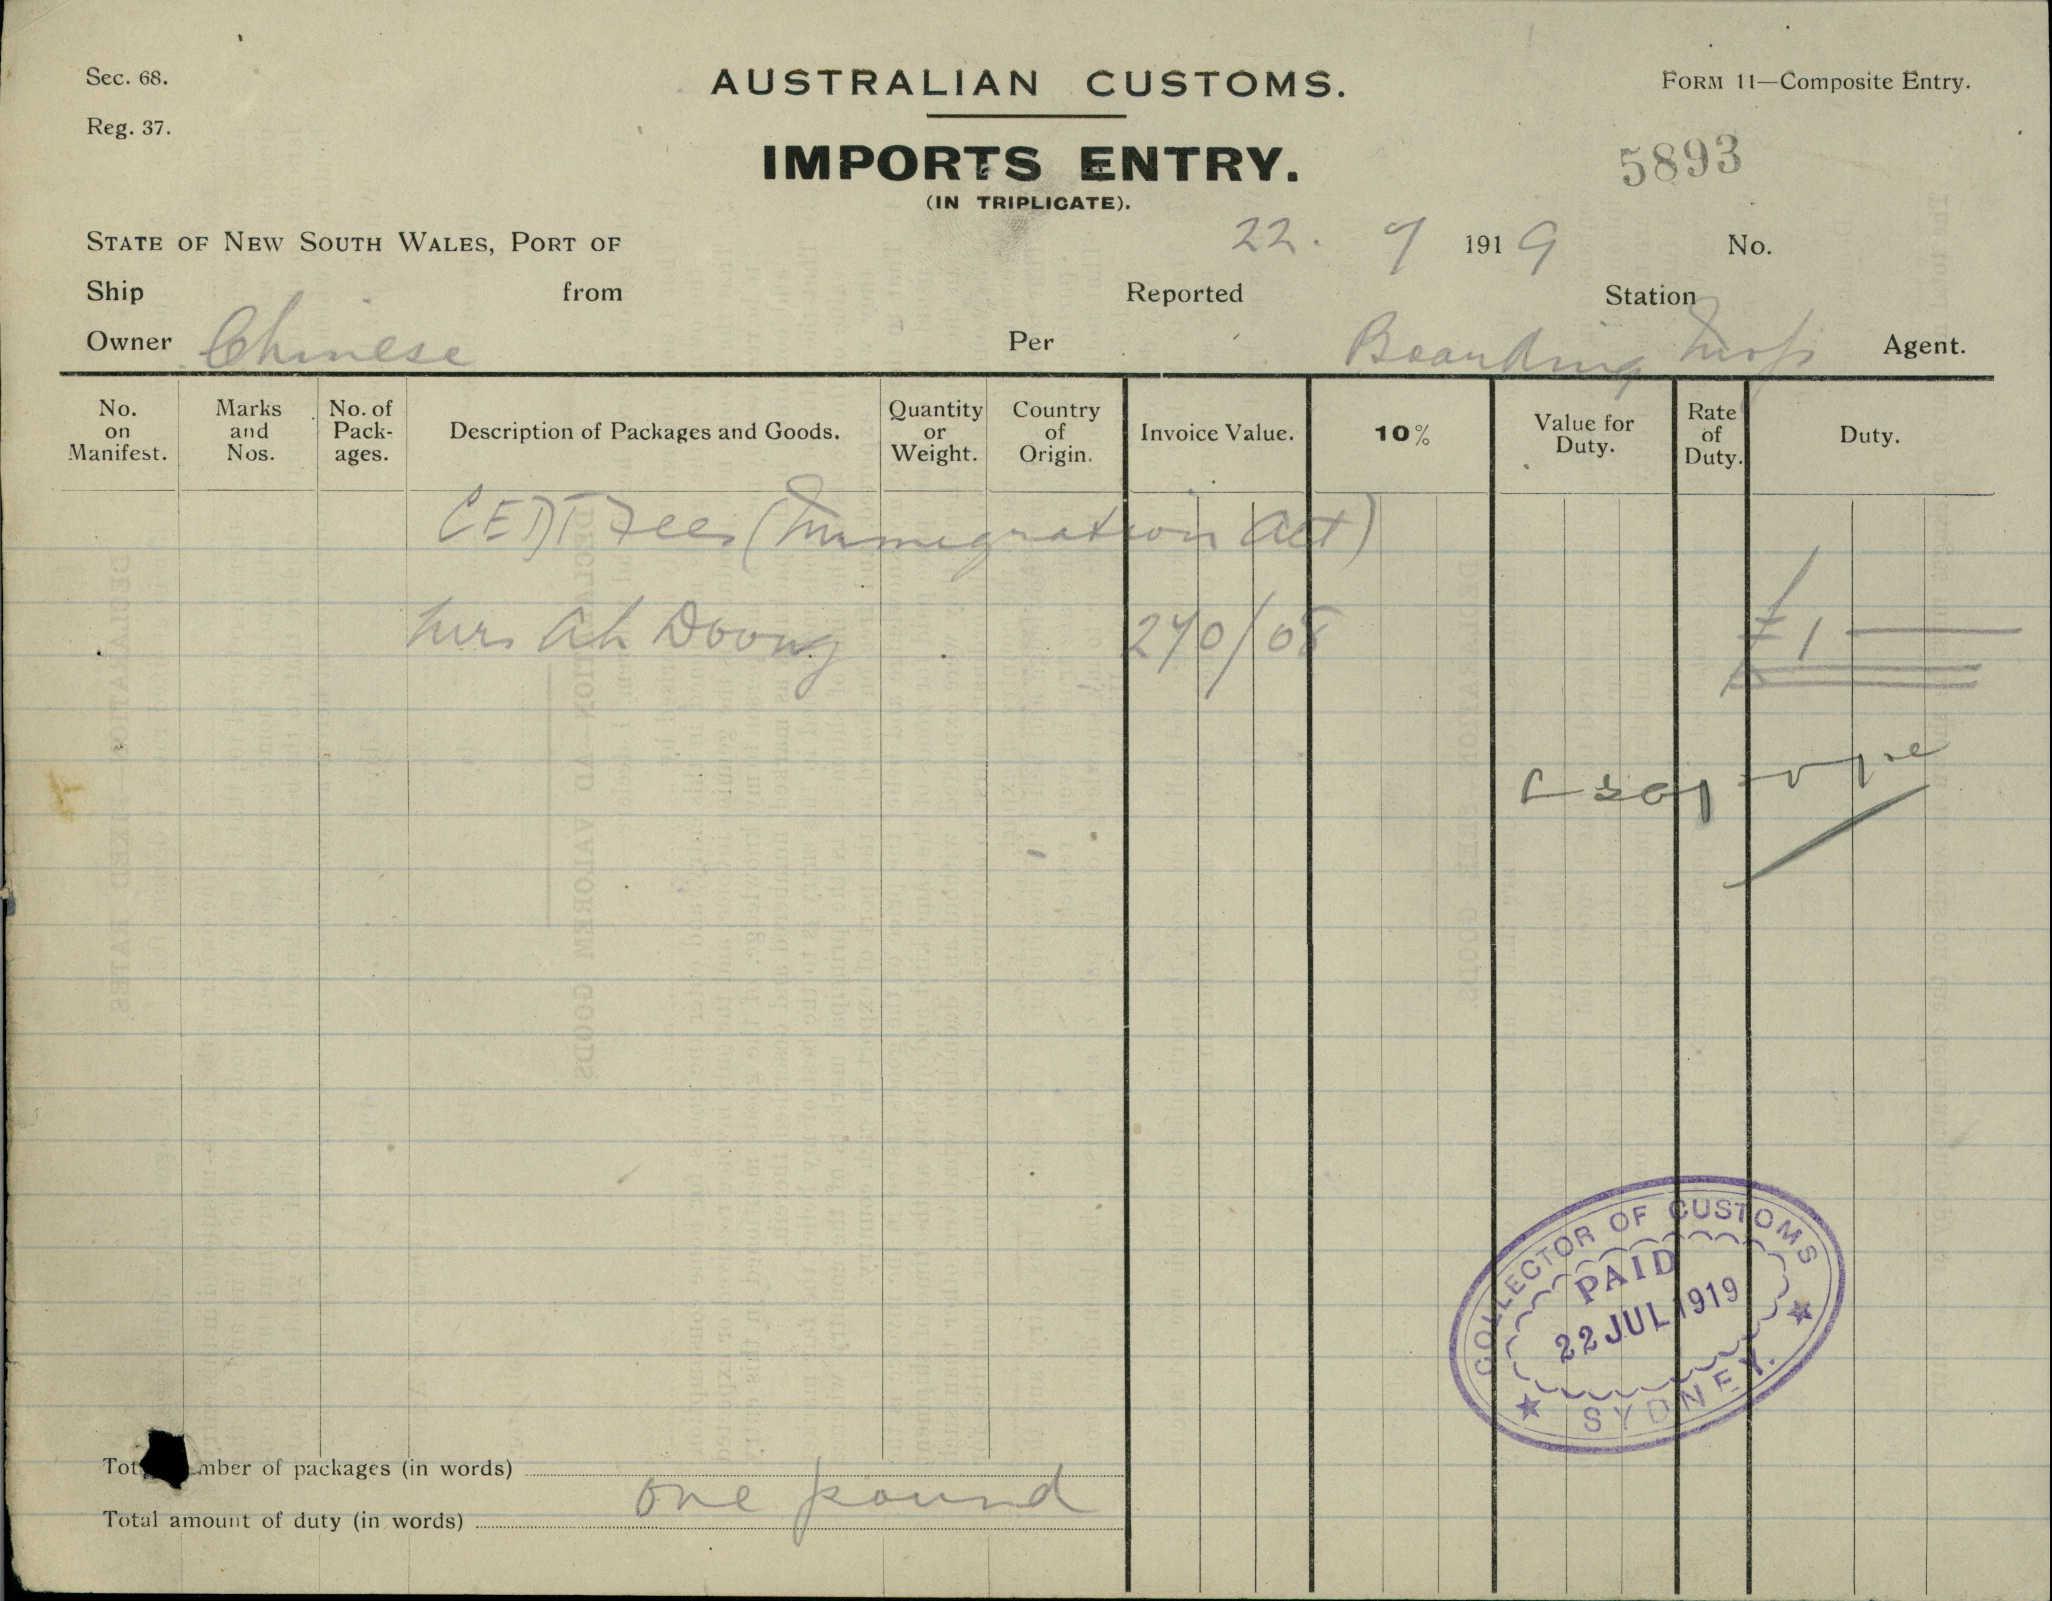 Sec. 68.
AUSTRALIAN CUSTOMS.
FORM 11—Composite Entry.
Reg. 37.
IMPORTS ENTRY.
5893
(IN TRIPLICATE).
STATE OF NEW SOUTH WALES, PORT OF 22. 7 1919 No.
Ship from Reported Station
Owner Chinese Per Boarding Insp Agent.
No. on Manifest.
Marks and Nos.
No. of Pack-ages.
Description of Packages and Goods.
Quantity or Weight.
Country of Origin.
Invoice Value.
10%
Value for Duty.
Rate of Duty.
Duty.
CEDT Fees (Immigration Act)
Mrs Ah Doong 270/08 £1
COLLECTOR OF CUSTOMS
PAID
22 JUL 1919
SYDNEY.
Tot mber of packages (in words)
Total amount of duty (in words) one pound